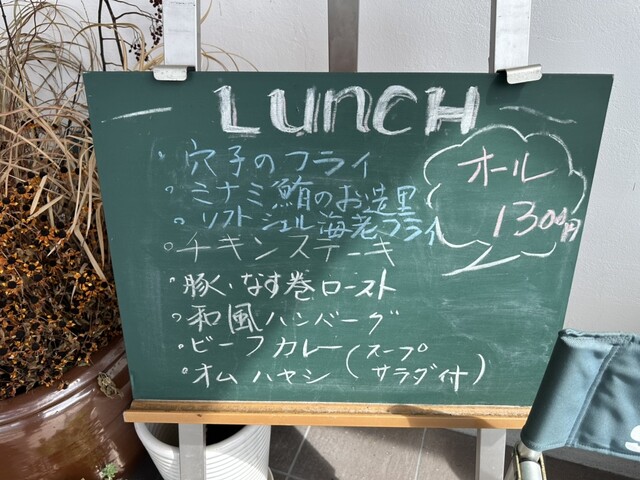 LUNCH
・穴子のフライ
・ミナミ鮪のお造里
・ソフトシェル海老フライ
・チキンステーキ
・豚・なす巻ロースト
・和風ハンバーグ
・ビーフカレー(スープ
・オムハヤシ(サラダ付)
オール
1300円